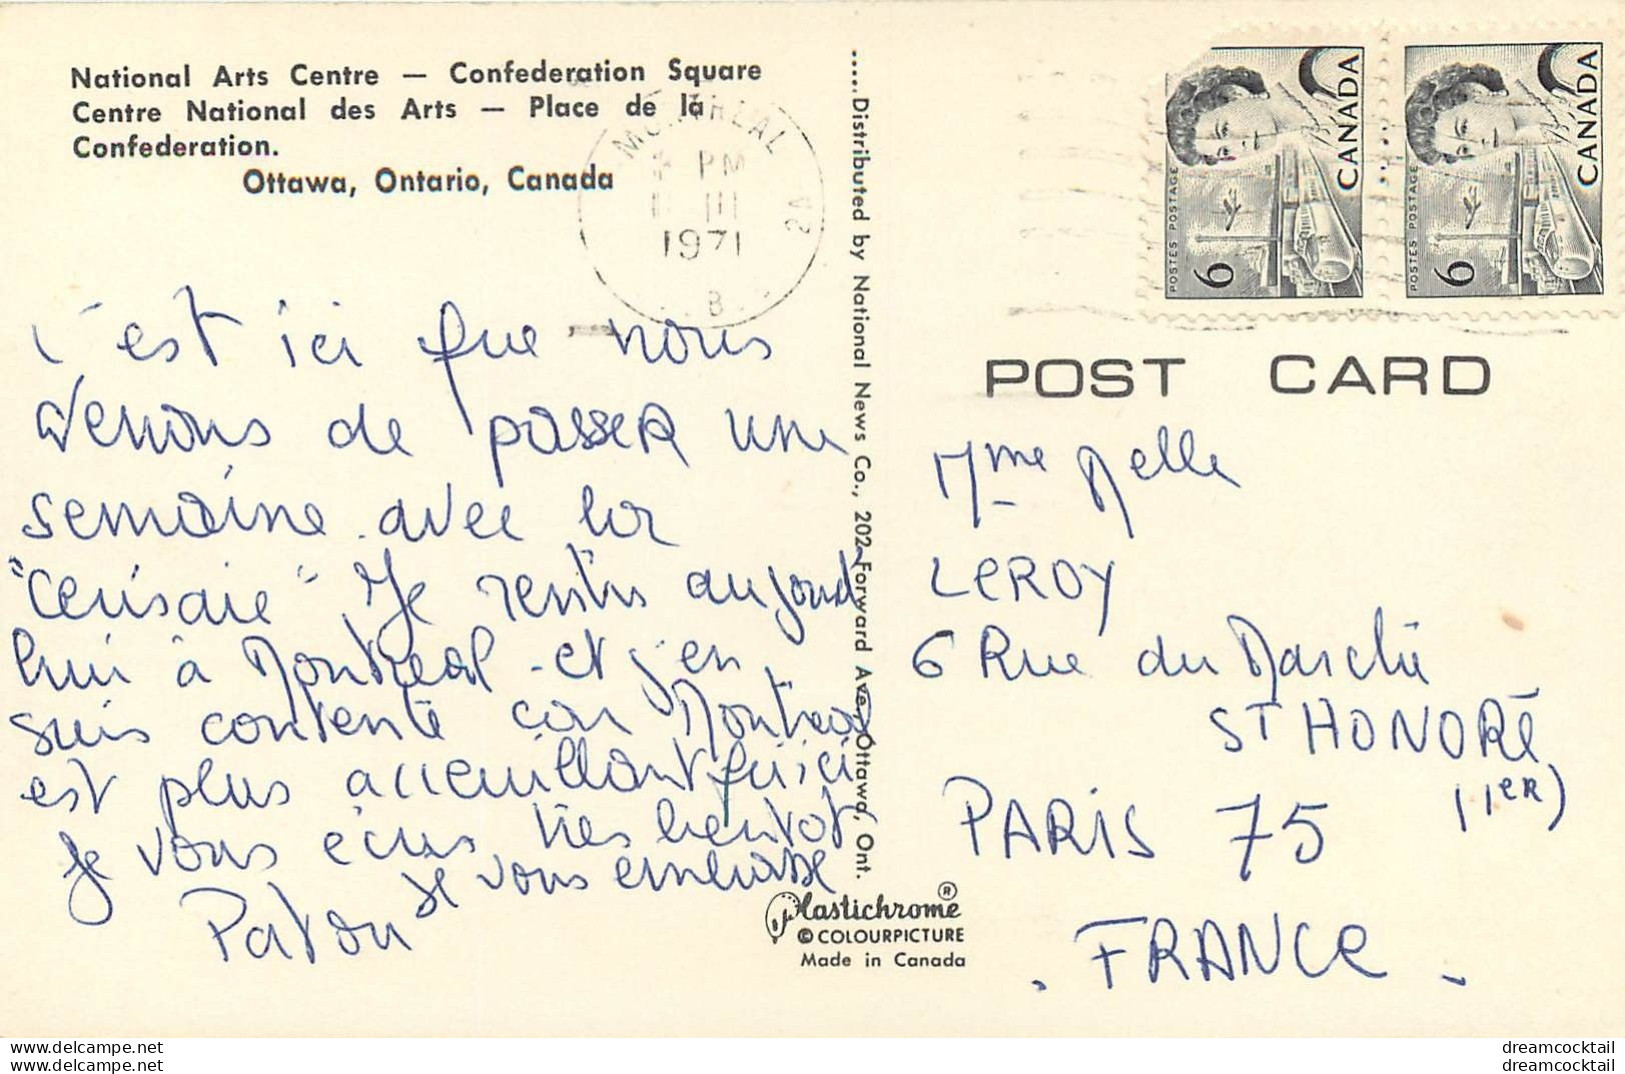 National Arts Centre — Confederation Square
Centre National des Arts — Place de la
Confederation.
Ottawa, Ontario, Canada
MONTREAL
PM
III
1971
B
C'est ici que nous
venons de passer une
semaine avec la
"Cerisaie" Je rentre aujourd
hui à Montréal - et j'en
suis contente car Montréal
est plus accueillant qu'ici
Je vous écris très bientôt
Je vous embrasse
Patou
.....Distributed by National News Co., 202 Forward Ave., Ottawa, Ont.
Plastichrome ®
© COLOURPICTURE
Made in Canada
POSTES POSTAGE
6
CANADA
POSTES POSTAGE
6
CANADA
POST CARD
Mme Melle
LEROY
6 Rue du Marché
ST HONORÉ
PARIS 75 (1er)
. FRANCE .
www.delcampe.net
dreamcocktail
www.delcampe.net
dreamcocktail